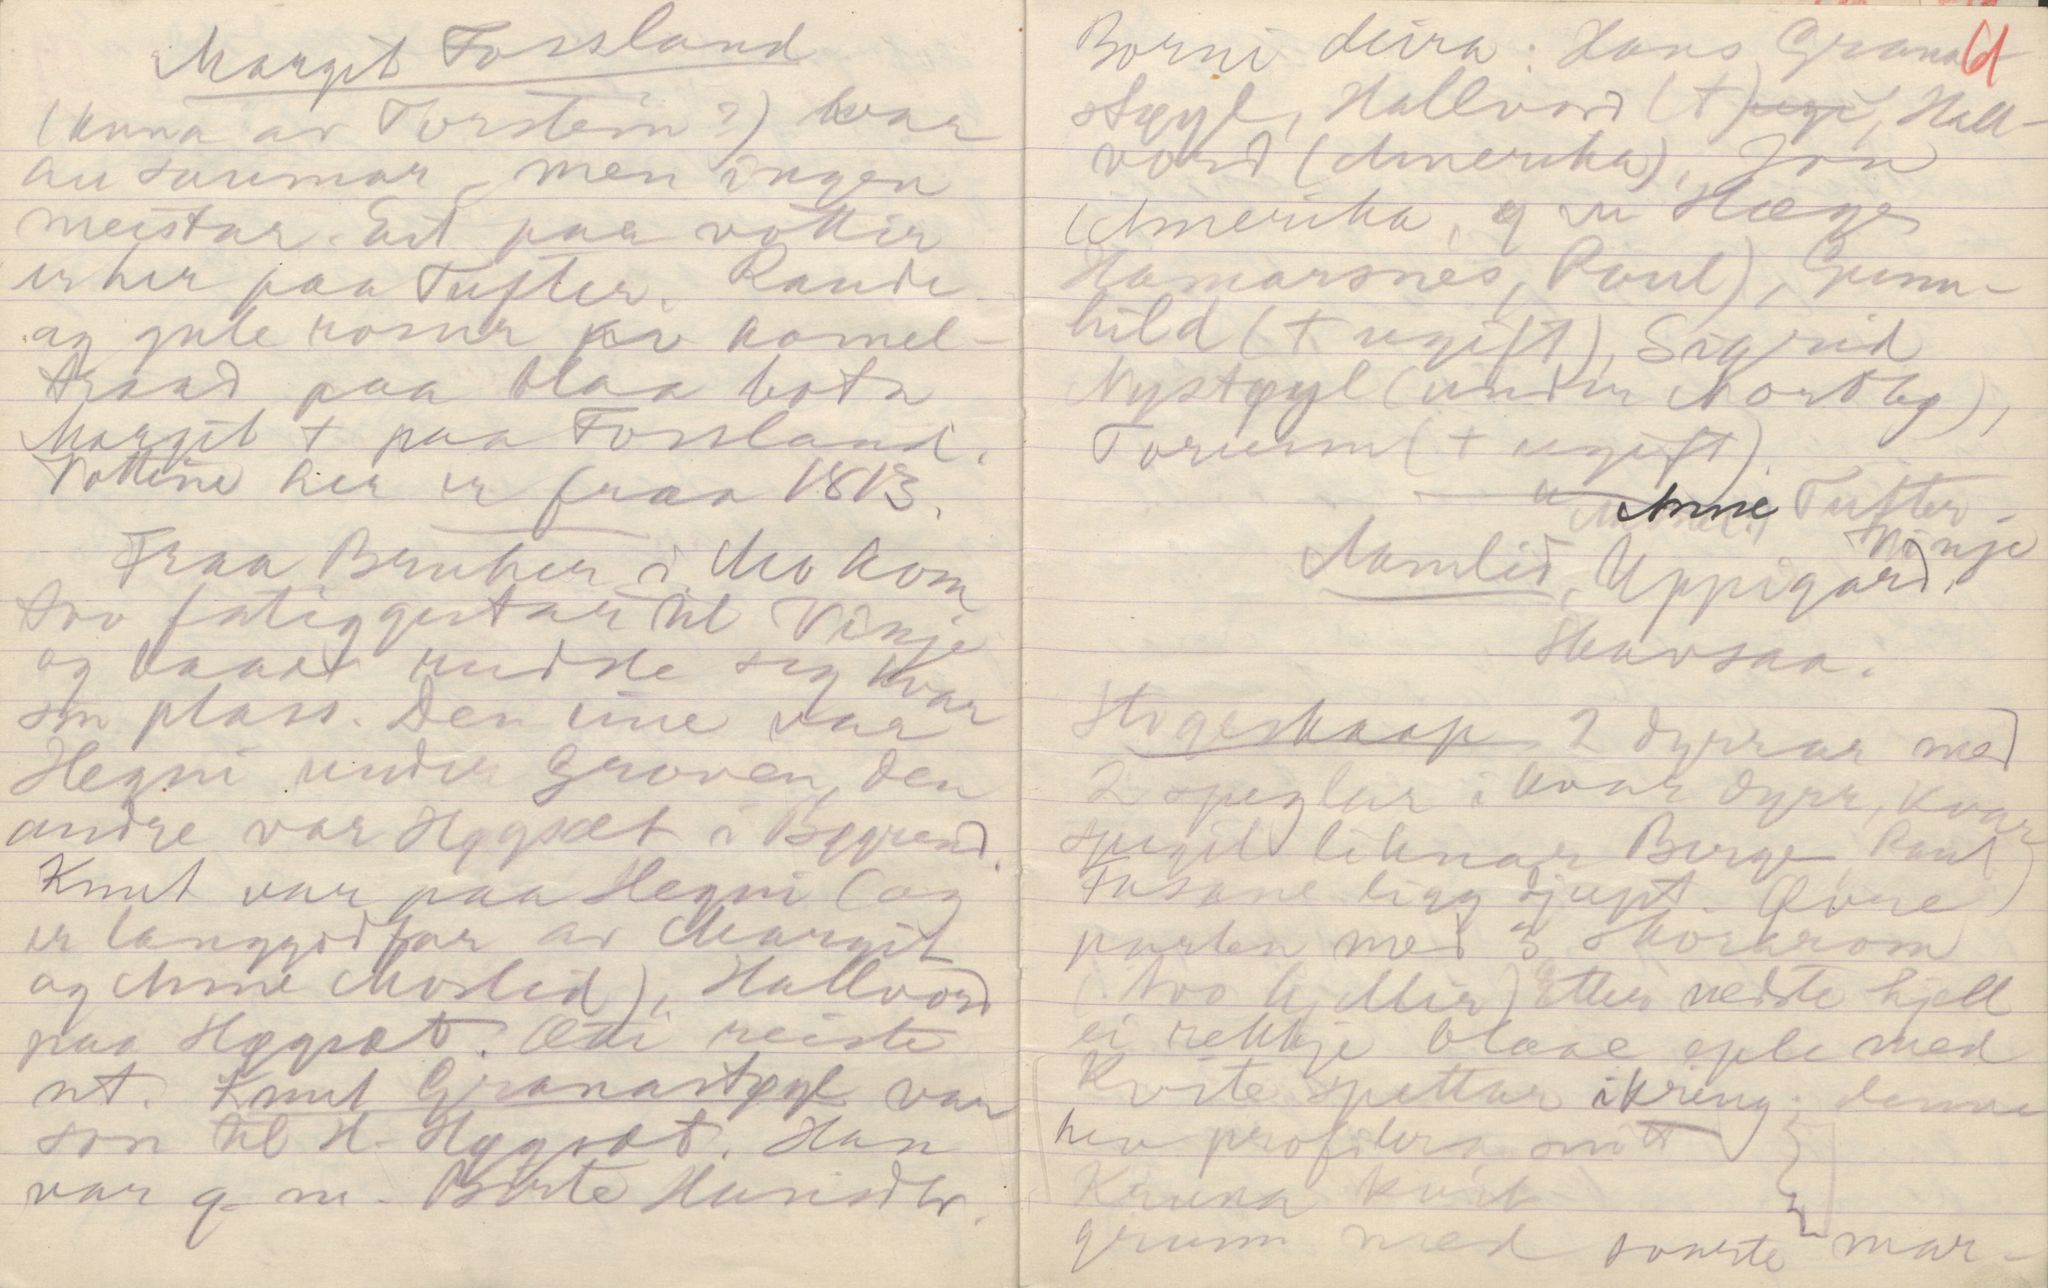 Margit Fossland
(kona av Torstein?) var
au saumar, men ingen
meistar. Eit par vottir
er her paa Tufter. Raude
og gule rosur på kamel-
traad paa blaa botn
Margit + paa Fossland.
Vottine her er fraa 1813.
Fraa Bruker i Mo kom
tvo fatiggjentar til Vinje
og baae rudde seg kvar
sin plass. Den eine var
Hegni under Groven, den
andre var Høgsæt i Bøgrend.
Knut var paa Hegni (og
er langgodfar av Margit
og Anne Moslid), Hallvord
paa Høgsæt. Ætti reiste
ut. Knut Granastøyl var
son til H. Høgsæt. Han
var g. m. Birte Hansdtr.
Borni deira: Hans Grana-
støyl, Hallvord (+), Hall-
vord (Amerika), Jon
(Amerika, g m Hæge
Hamarsnes, Poul), Gunn-
hild (+ ugift), Sigrid
Nystøyl (under Nordbg),
Torunn (+ ugift).
61
Anne Tufter
Vinje
Aamlid, Uppigard,
Skavsaa.
Stogeskaap 2 dyrrar med
2 speglar i kvar dyrr, kvar
spegil liknar Berge, Raul
Fasane ligg djupt. Øvre
parten med 3 skorarom
(tvo hjellir) Etter nedste hjell
ei rekkje blaae eple med
kvite spettar ikring; denne
hev profilera snitt
Kruna kvit
grunn med svarte mar-